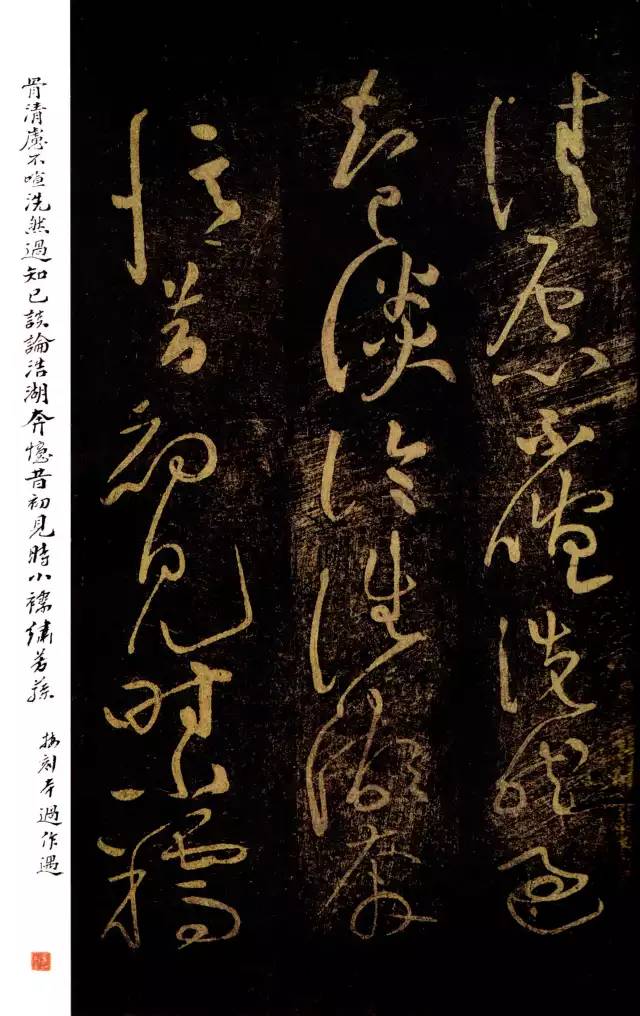 清慮不喧洗然過
知己談論浩湖奔
憶昔初見時小襦
骨清慮不喧洗然過知己談論浩湖奔憶昔初見時小襦繡芳蓀
按刻本過作遇